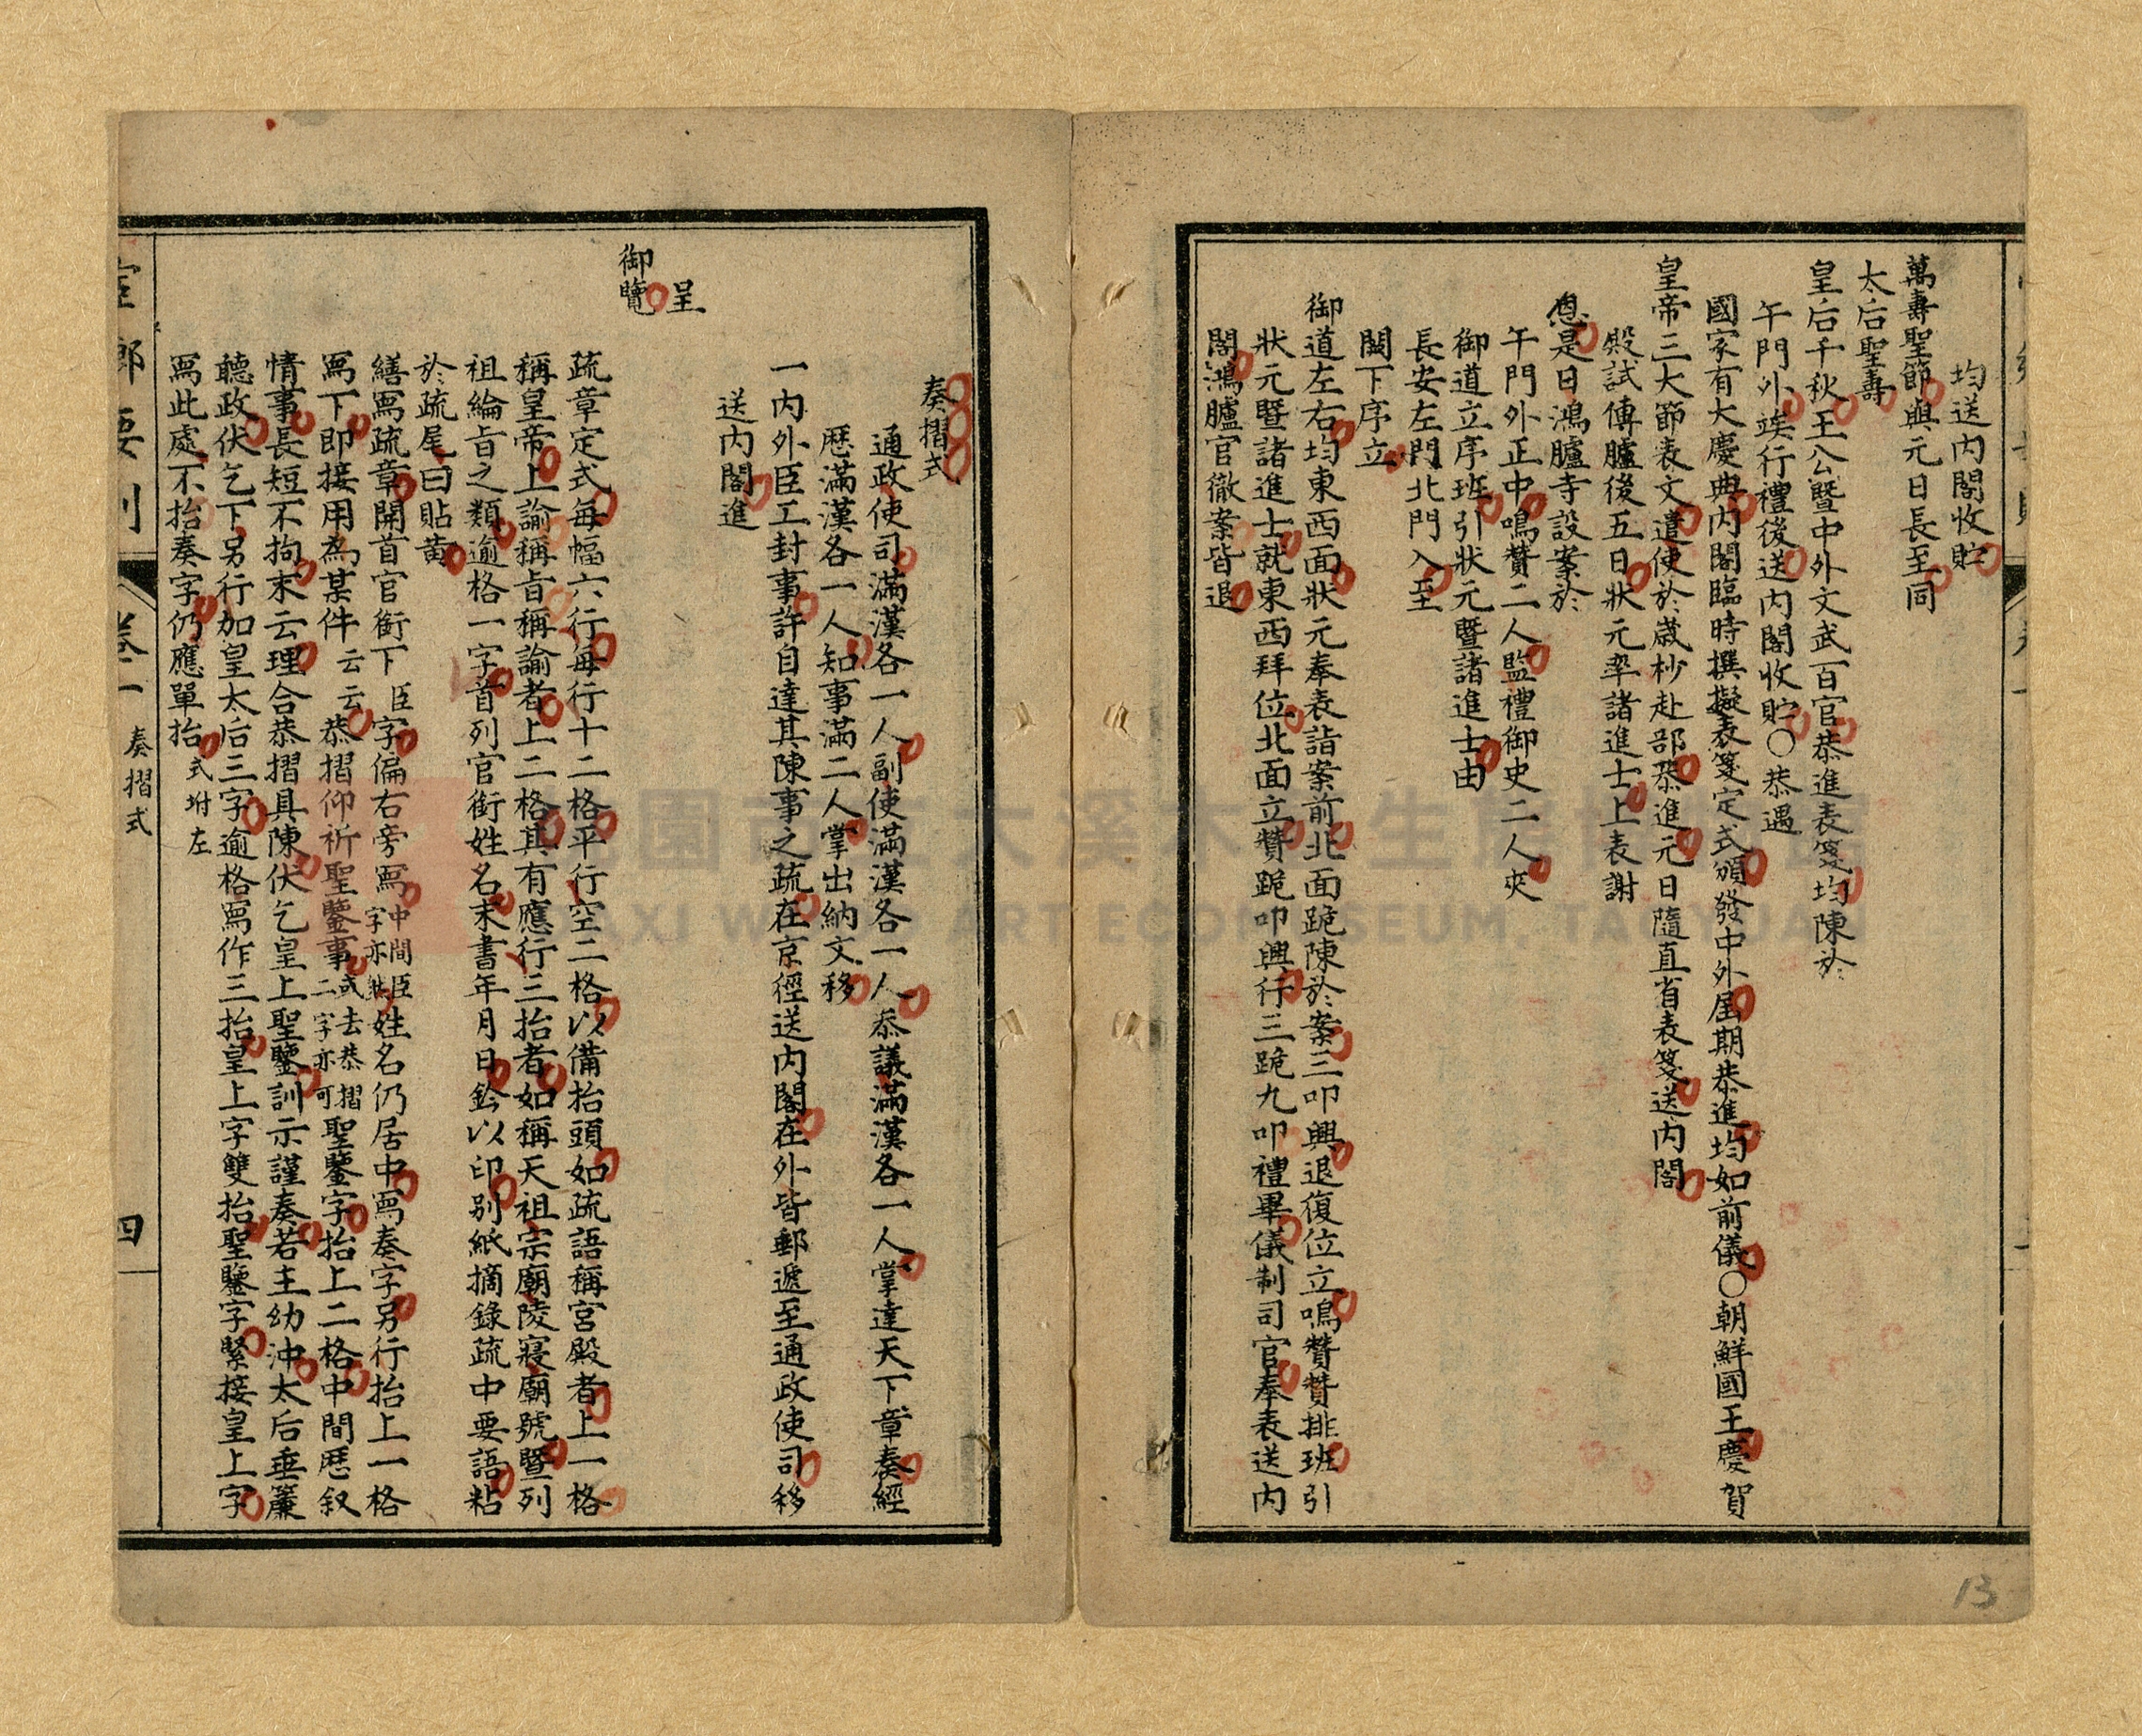 均送内閣收貯
萬壽聖節與元日長至同
太后聖壽
皇后千秋王公暨中外文武百官恭進表箋均陳於
午門外竢行禮後送内閣收貯〇恭遇
國家有大慶典内閣臨時撰擬表箋定式頒發中外屆期恭進均如前儀〇朝鮮國王慶賀
皇帝三大節表文遣使於歲杪赴部恭進元日隨直省表箋送内閣
殿試傳臚後五日狀元率諸進士上表謝
恩是日鴻臚寺設案於
午門外正中鳴贊二人監禮御史二人夾
御道立序班引狀元暨諸進士由
長安左門北門入至
闕下序立
御道左右均東西面狀元奉表詣案前北面跪陳於案三叩興退復位立鳴贊贊排班引
狀元暨諸進士就東西拜位北面立贊跪叩興行三跪九叩禮畢儀制司官奉表送内
閣鴻臚官徹案皆退
13
奏摺式
通政使司滿漢各一人副使滿漢各一人叅議滿漢各一人掌達天下章奏經
歷滿漢各一人知事滿二人掌出納文移
一内外臣工封事許自達其陳事之疏在京徑送内閣在外皆郵遞至通政使司移
送内閣進
呈
御覽
疏章定式每幅六行每行十二格平行空二格以備抬頭如疏語稱宮殿者上一格
稱皇帝上諭稱旨稱諭者上二格其有應行三抬者如稱天祖宗廟陵寢廟號暨列
祖綸旨之類逾格一字首列官銜姓名末書年月日鈐以印别紙摘錄疏中要語粘
於疏尾曰貼黄
繕寫疏章開首官銜下臣字偏右旁寫中間臣字亦然姓名仍居中寫奏字另行抬上一格
寫下即接用為某件云云恭摺仰祈聖鑒事或去恭摺二字亦可聖鑒字抬上二格中間歷叙
情事長短不拘末云理合恭摺具陳伏乞皇上聖鑒訓示謹奏若主幼沖太后垂簾
聽政伏乞下另行加皇太后三字逾格寫作三抬皇上字雙抬聖鑒字緊接皇上字
寫此處不抬奏字仍應單抬式坿左
卷一 奏摺式 四
桃園市立大溪木藝生態博物館
DAXI WOOD ART ECOMUSEUM, TAOYUAN